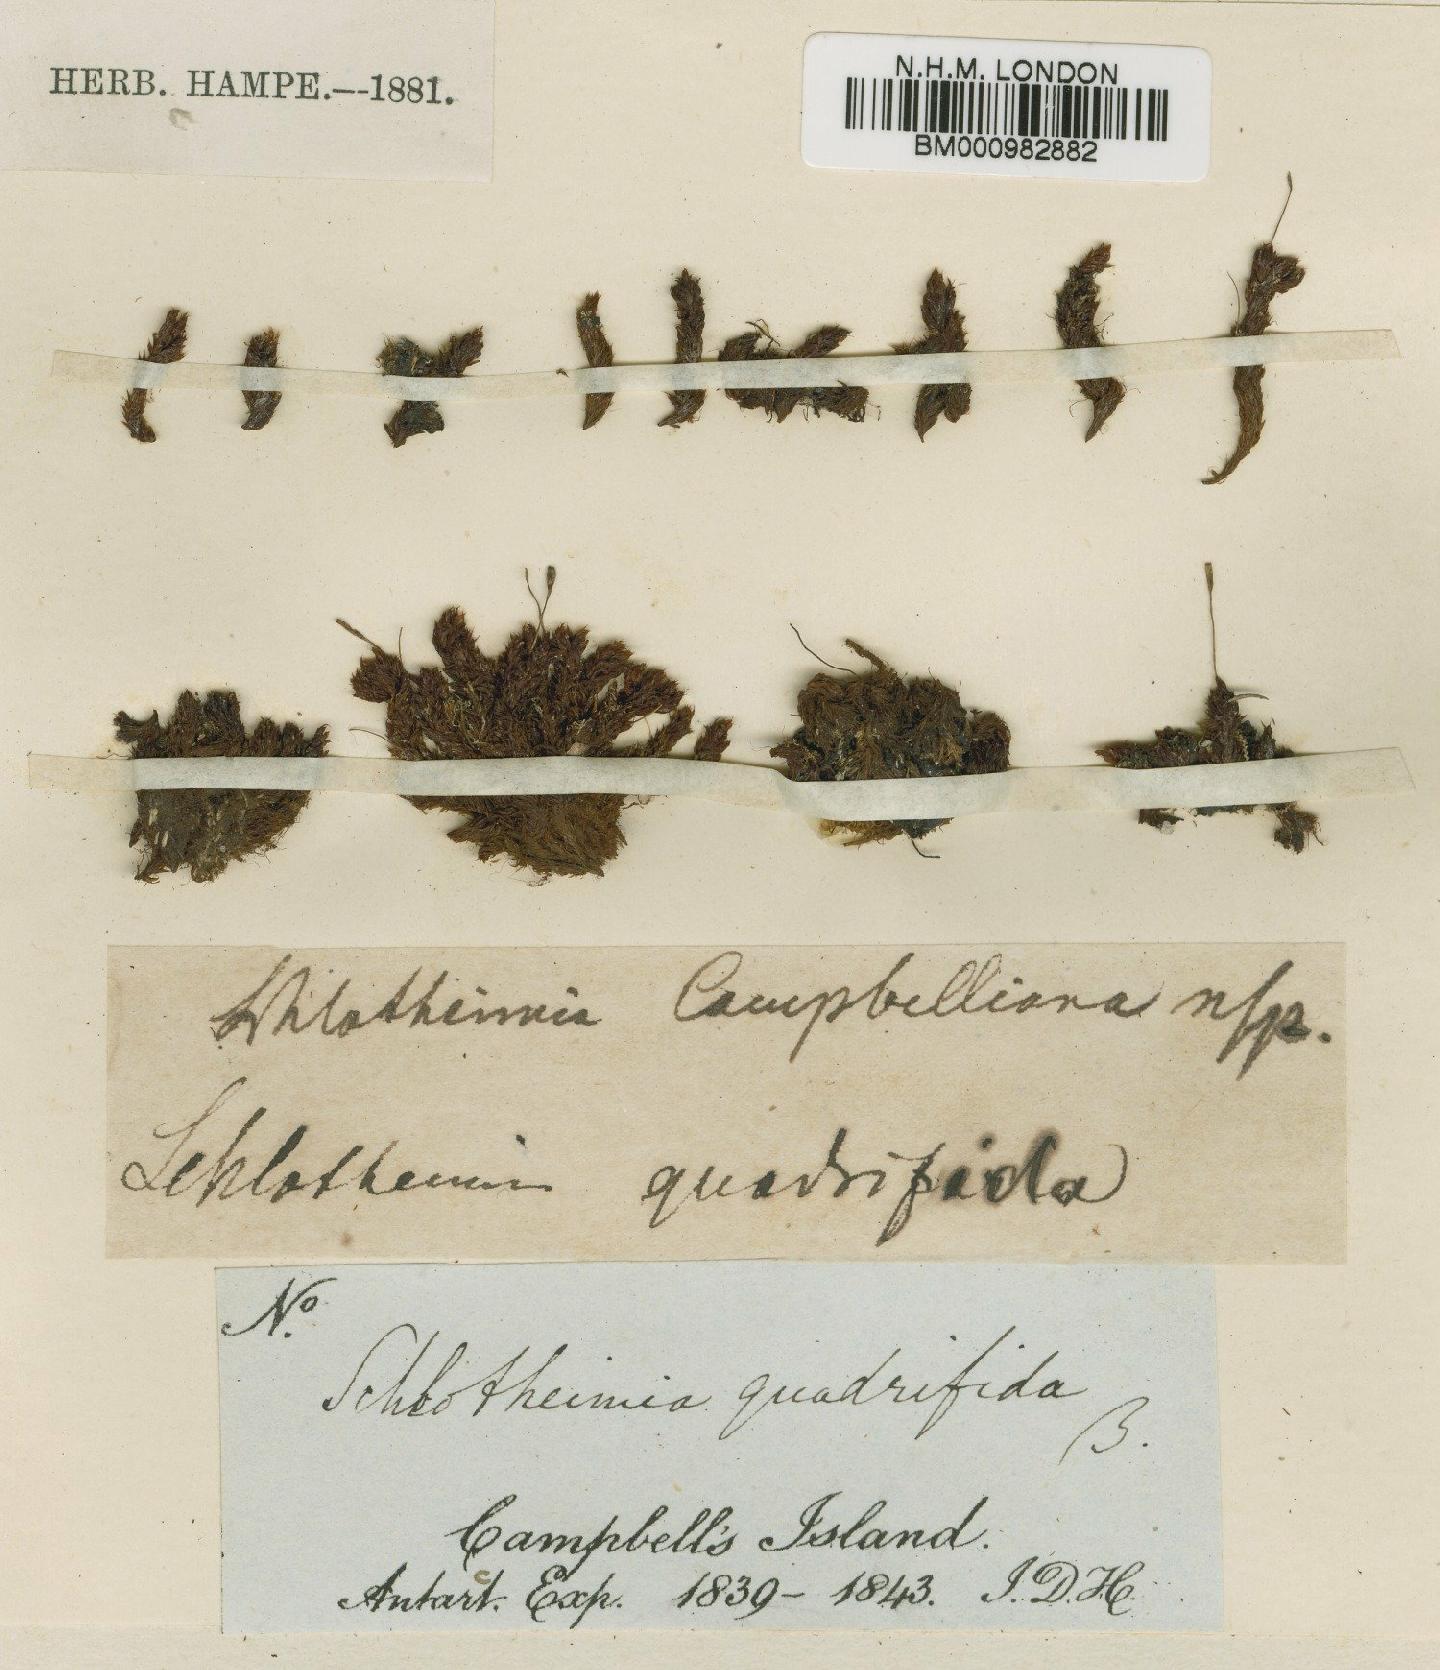 HERB. HAMPE.--1881.
N.H.M. LONDON
BM000982882
Schlotheimia Campbelliana nsp.
Schlotheimia quadrifida
No.
Schlotheimia quadrifida
β.
Campbell's Island.
Antarct. Exp. 1839–1843. J.D.H.